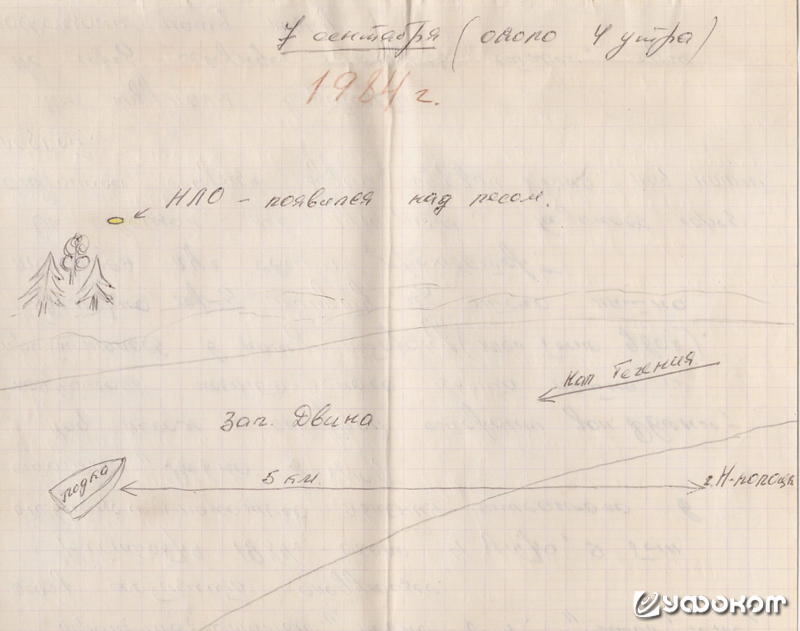 7 сентября (около 4 утра)
1984 г.
НЛО – появился над лесом.
Нап. Течения
Зап. Двина
лодка
5 км
г. Н-полоцк
УФОКОМ